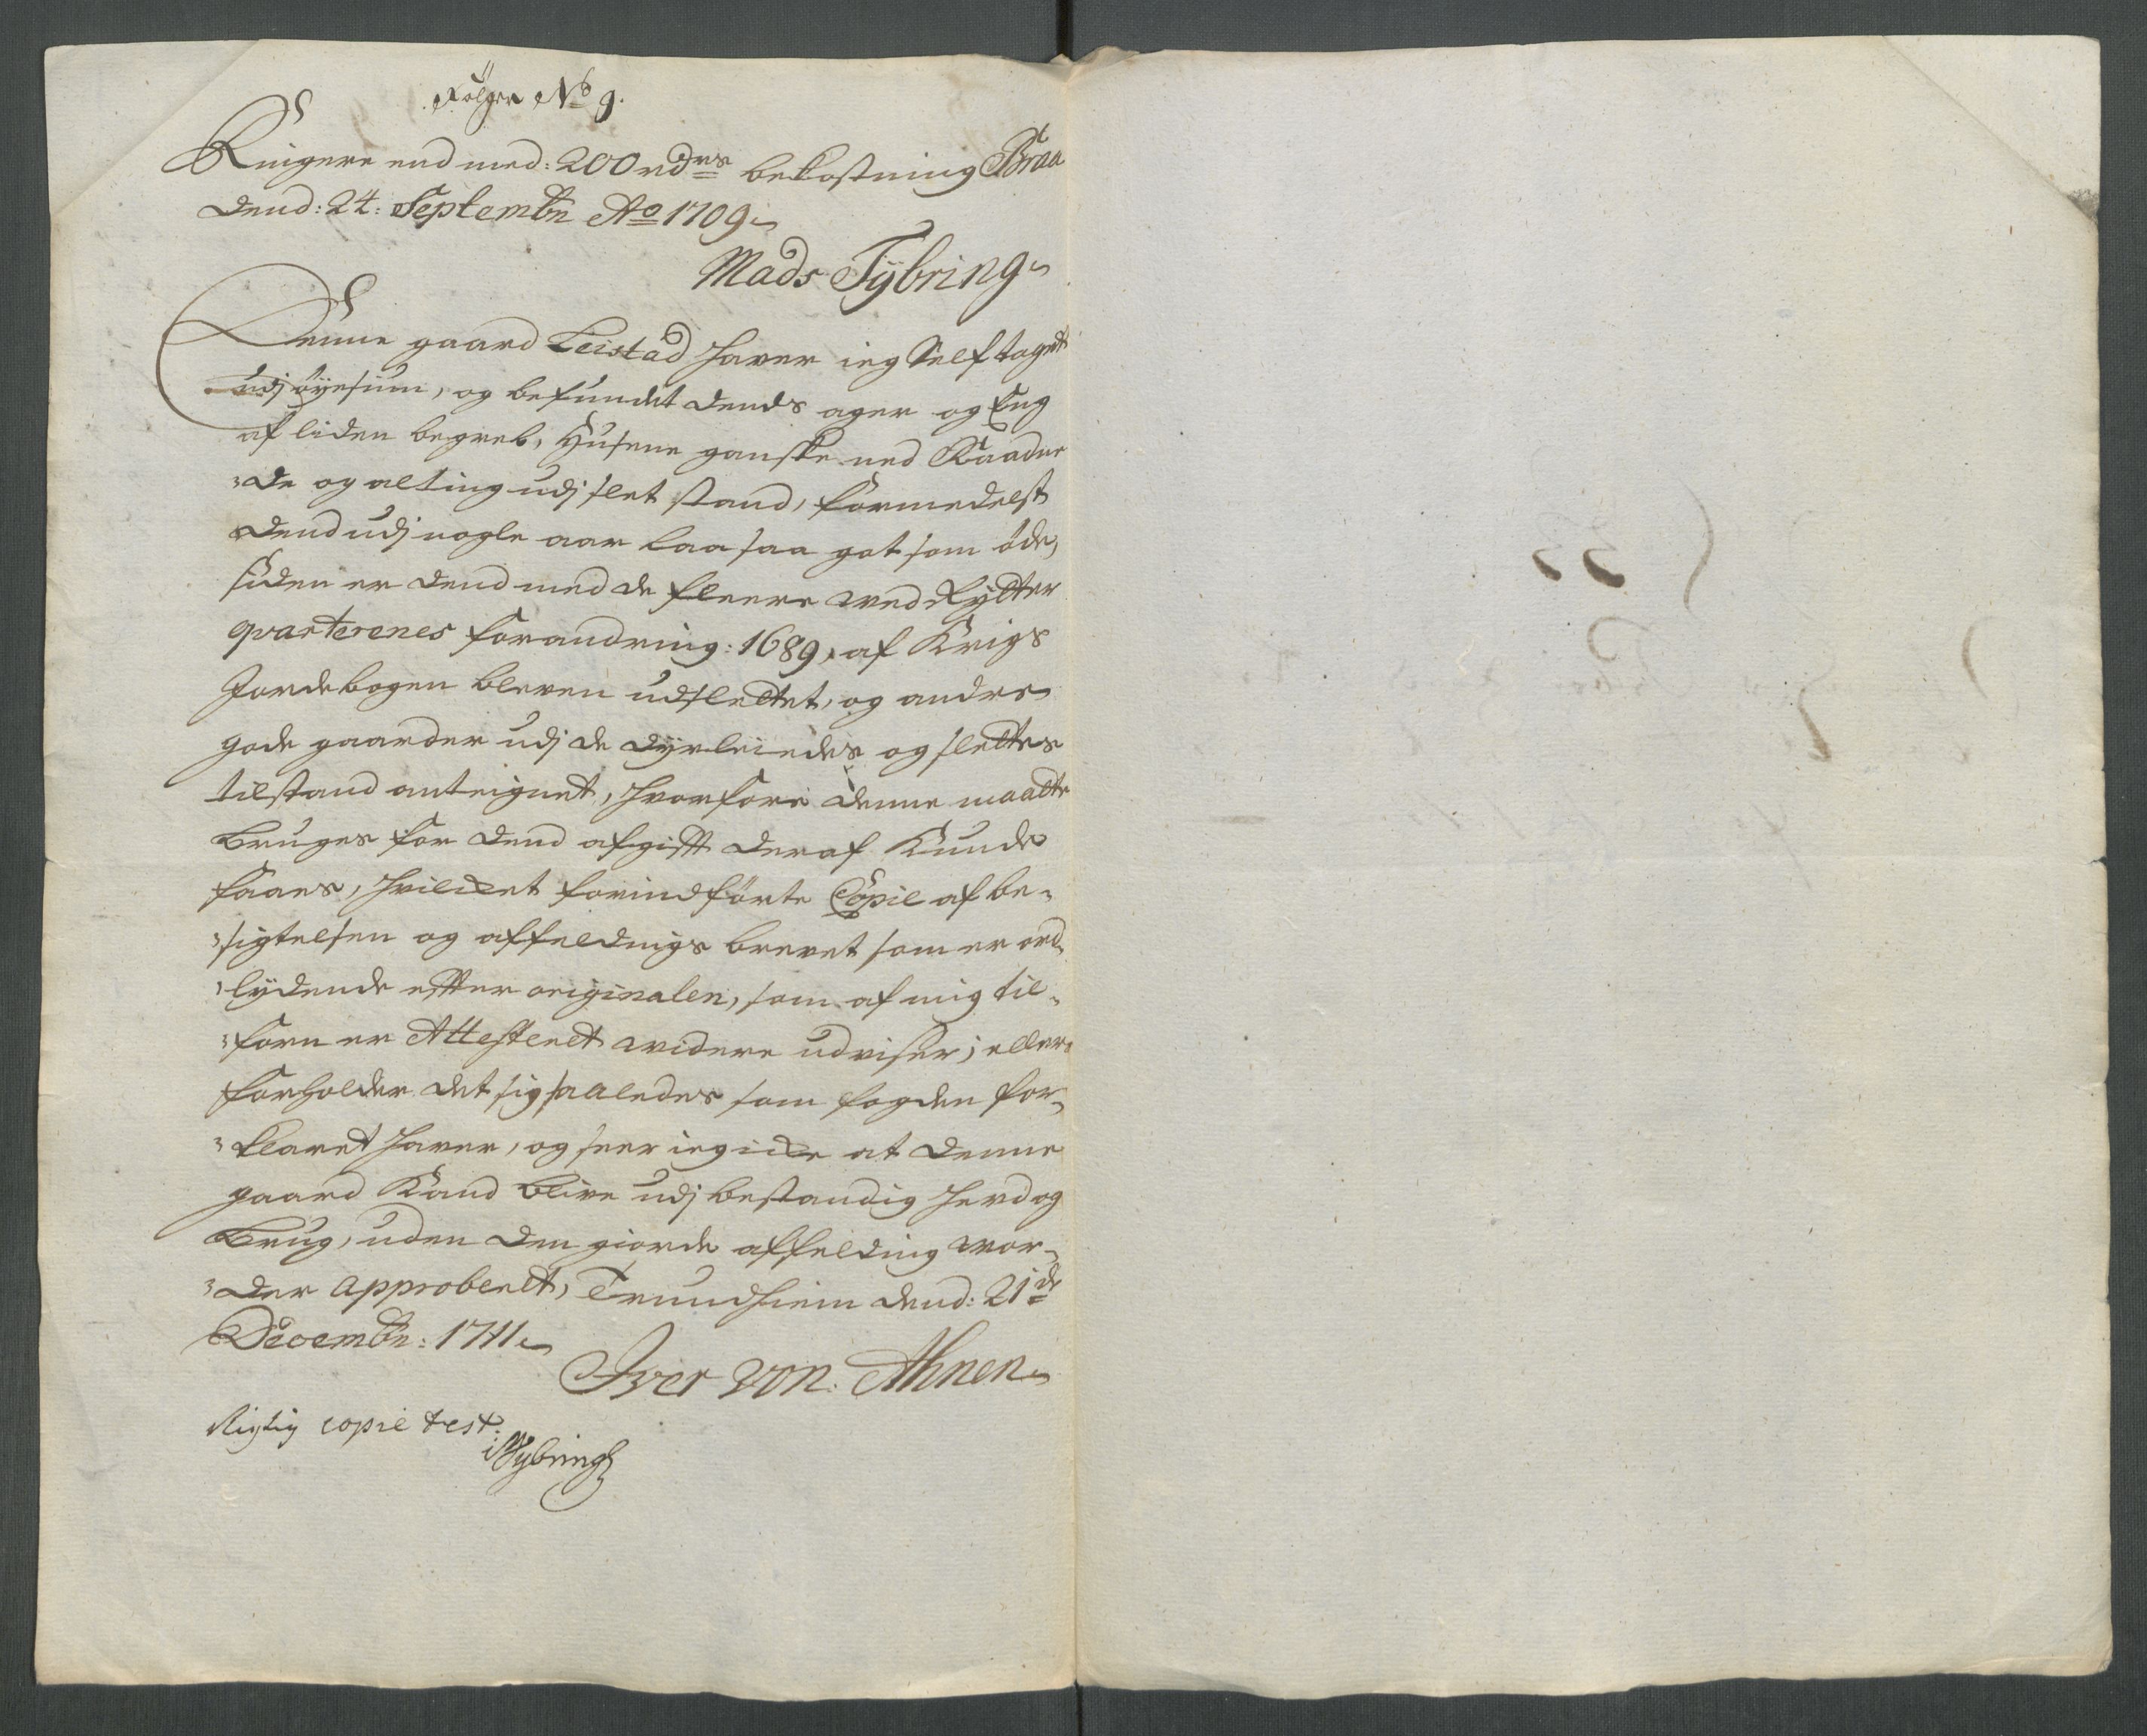 Følger No 9.
Ringere end med: 200 rdrs bekostning Braa
dend: 24: Septembr Ao 1709
Mads Tybring
Denne gaard Leistad hafver ieg Self taget
udj øyesiun, og befundet dends ager og Eng
af liden begreb, Husene ganske ned Raadne
de og alting udj slet stand, formedelst
dend udj nogle aar laa saa got som øde,
siden er dend med de fleere ved Rytter
qvarterenes forandring: 1689, af Krigs
Jordebogen bleven udslettet, og andre
gode gaarder udj de dyrleiedes og slettes
tilstand anteignet, hvorfore denne maatte
bruges for dend afgift deraf Kunde
faaes, hvilket forindførte Copie af be-
sigtelsen og affeldnigs brevet som er ord-
lydende efter originalen, som af mig til-
forn er Attesteret videre udviser; ellers
forholder det sig saaledes som fogden for-
klaret hafver, og seer ieg icke at denne
gaard Kand blive udj bestandig hefd og
brug, uden den giorde affelding vor-
der approberet, Trundhiem dend: 21de
Decembr: 1711
Iver von Ahnen
Rigtig copie test:
MTybring